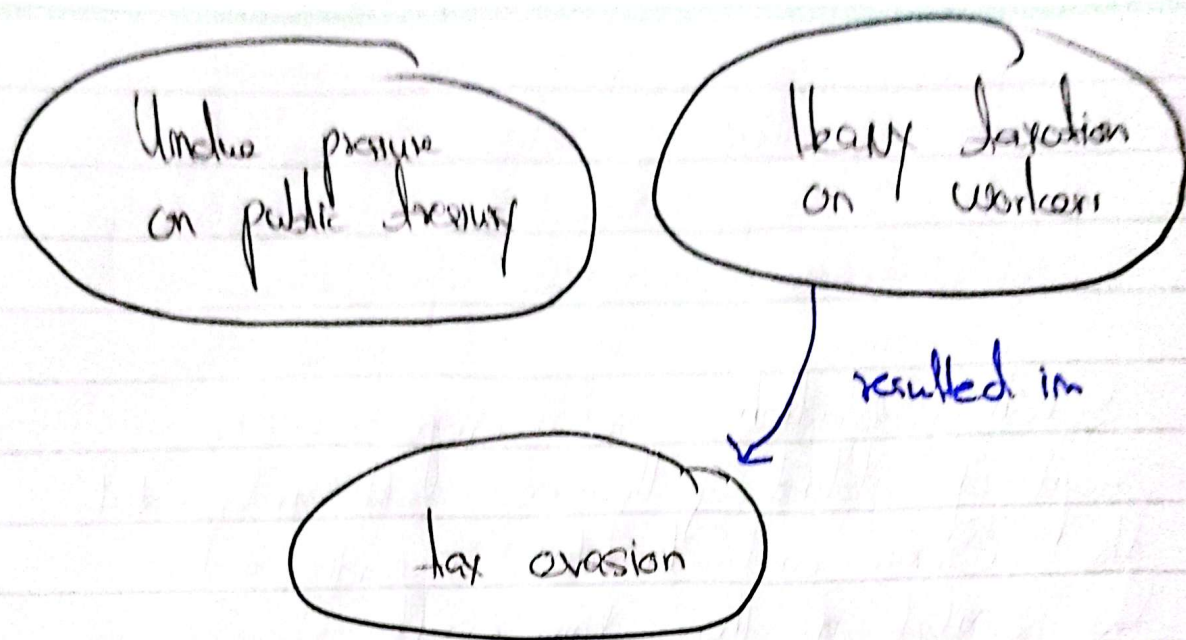 Undue pressure
on public treasury
Heavy taxation
on workers
resulted in
tax evasion